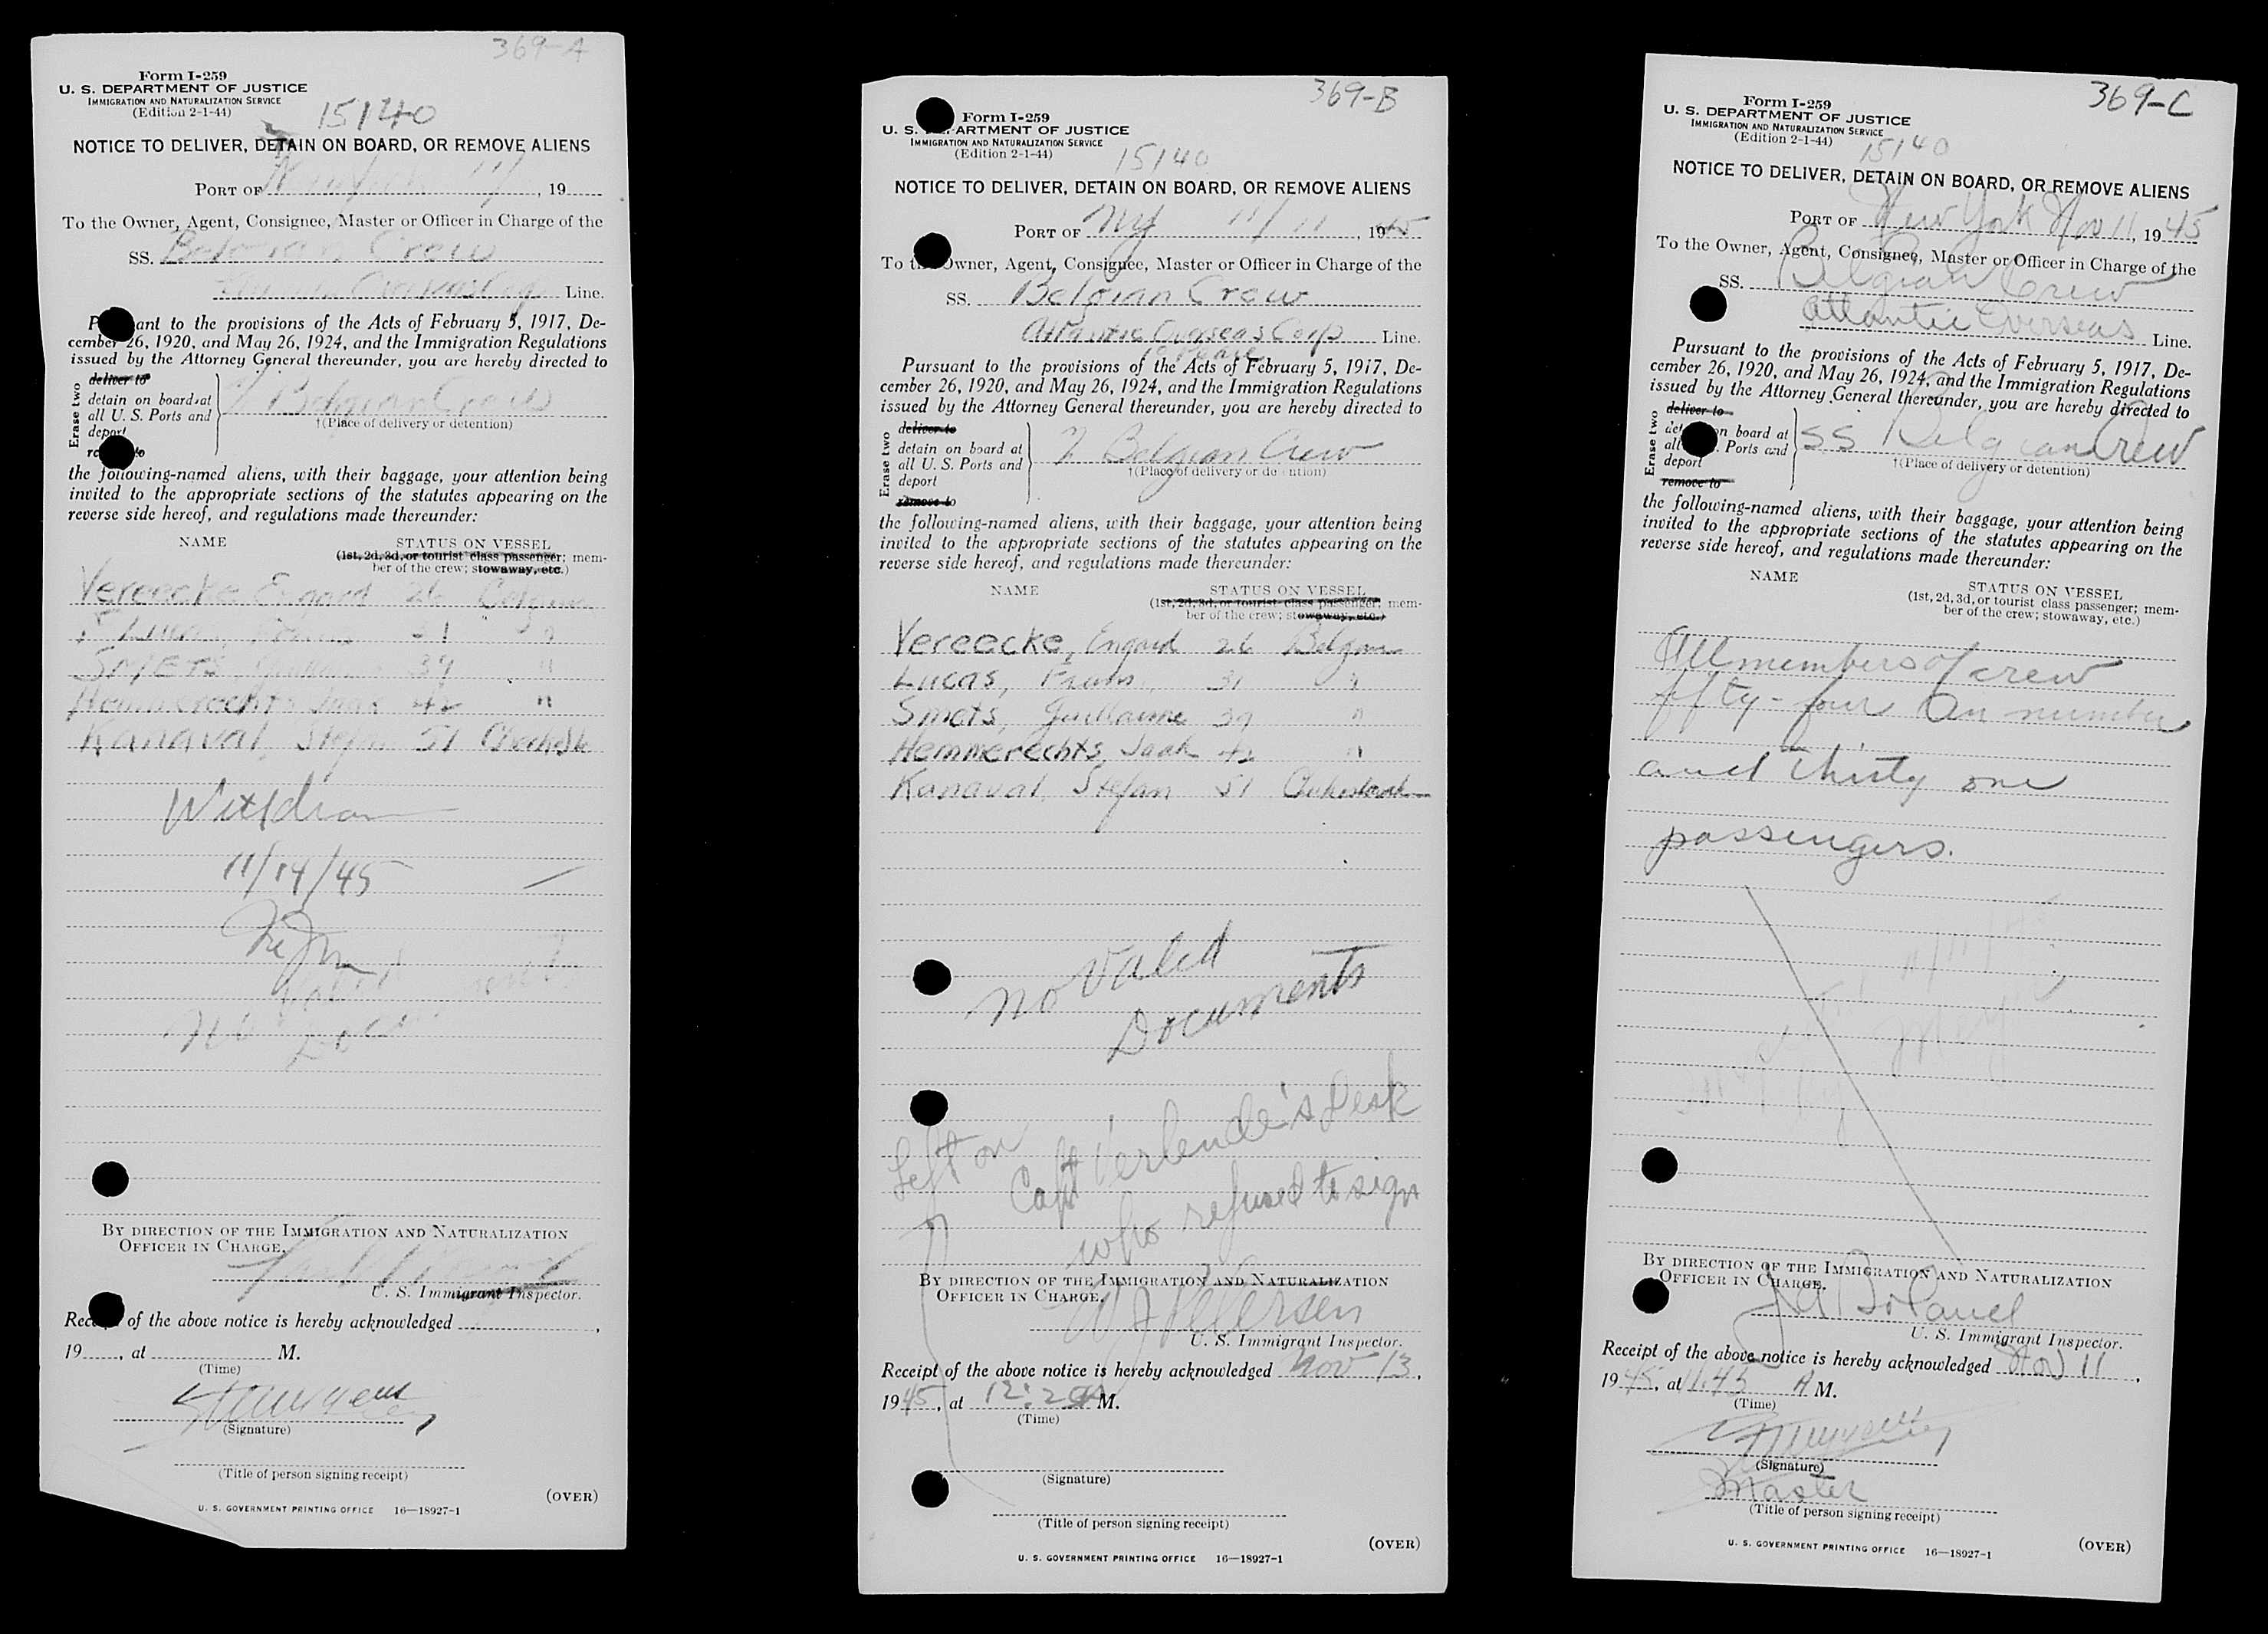 369-A
Form I-259
U. S. DEPARTMENT OF JUSTICE
IMMIGRATION AND NATURALIZATION SERVICE
(Edition 2-1-44)
15140
NOTICE TO DELIVER, DETAIN ON BOARD, OR REMOVE ALIENS
PORT OF 11/ , 19
To the Owner, Agent, Consignee, Master or Officer in Charge of the
SS. Belgian Crew
Line.
Pursuant to the provisions of the Acts of February 5, 1917, De-
cember 26, 1920, and May 26, 1924, and the Immigration Regulations
issued by the Attorney General thereunder, you are hereby directed to
Erase two
deliver to
detain on board at
all U. S. Ports and
deport
Belgian Crew
†(Place of delivery or detention)
the following-named aliens, with their baggage, your attention being
invited to the appropriate sections of the statutes appearing on the
reverse side hereof, and regulations made thereunder:
NAME STATUS ON VESSEL
(1st, 2d, 3d, or tourist class passenger; mem-
ber of the crew; stowaway, etc.)
Vereecke 26
Lucas 31 "
SMETS 39 "
Hemmerechts Jaak 42 "
Kanaval Stefan 51
11/14/45
No
BY DIRECTION OF THE IMMIGRATION AND NATURALIZATION
OFFICER IN CHARGE.
U. S. Immigrant Inspector.
Receipt of the above notice is hereby acknowledged ,
19 , at M.
(Time)
(Signature)
(Title of person signing receipt)
(OVER)
U. S. GOVERNMENT PRINTING OFFICE 16—18927-1
369-B
Form I-259
U. S. DEPARTMENT OF JUSTICE
IMMIGRATION AND NATURALIZATION SERVICE
(Edition 2-1-44)
15140
NOTICE TO DELIVER, DETAIN ON BOARD, OR REMOVE ALIENS
PORT OF NY 11/11 , 1945
To the Owner, Agent, Consignee, Master or Officer in Charge of the
SS. Belgian Crew
Atlantic Overseas Corp Line.
Pursuant to the provisions of the Acts of February 5, 1917, De-
cember 26, 1920, and May 26, 1924, and the Immigration Regulations
issued by the Attorney General thereunder, you are hereby directed to
Erase two
deliver to
detain on board at
all U. S. Ports and
deport
remove to
Belgian Crew
†(Place of delivery or detention)
the following-named aliens, with their baggage, your attention being
invited to the appropriate sections of the statutes appearing on the
reverse side hereof, and regulations made thereunder:
NAME STATUS ON VESSEL
(1st, 2d, 3d, or tourist class passenger; mem-
ber of the crew; stowaway, etc.)
Vereecke, 26
Lucas, 31 "
Smets, Guillaume 39 "
Hemmerechts, Jaak 42 "
Kanaval, Stefan 51
no valid
Documents
Left on
Capt Verlende's Desk
who refused to sign
BY DIRECTION OF THE IMMIGRATION AND NATURALIZATION
OFFICER IN CHARGE.
U. S. Immigrant Inspector.
Receipt of the above notice is hereby acknowledged Nov 13,
1945, at M.
(Time)
(Signature)
(Title of person signing receipt)
(OVER)
U. S. GOVERNMENT PRINTING OFFICE 16—18927-1
369-C
Form I-259
U. S. DEPARTMENT OF JUSTICE
IMMIGRATION AND NATURALIZATION SERVICE
(Edition 2-1-44)
15140
NOTICE TO DELIVER, DETAIN ON BOARD, OR REMOVE ALIENS
PORT OF New York Nov 11, 1945
To the Owner, Agent, Consignee, Master or Officer in Charge of the
SS. Belgian Crew
Atlantic Overseas Line.
Pursuant to the provisions of the Acts of February 5, 1917, De-
cember 26, 1920, and May 26, 1924, and the Immigration Regulations
issued by the Attorney General thereunder, you are hereby directed to
Erase two
deliver to
detain on board at
all U. S. Ports and
deport
remove to
SS Belgian Crew
†(Place of delivery or detention)
the following-named aliens, with their baggage, your attention being
invited to the appropriate sections of the statutes appearing on the
reverse side hereof, and regulations made thereunder:
NAME STATUS ON VESSEL
(1st, 2d, 3d, or tourist class passenger; mem-
ber of the crew; stowaway, etc.)
All members of crew
fifty-four in number
and thirty one
passengers.
BY DIRECTION OF THE IMMIGRATION AND NATURALIZATION
OFFICER IN CHARGE.
U. S. Immigrant Inspector.
Receipt of the above notice is hereby acknowledged Nov 11,
1945, at 11.45 A M.
(Time)
(Signature)
Master
(Title of person signing receipt)
(OVER)
U. S. GOVERNMENT PRINTING OFFICE 16—18927-1